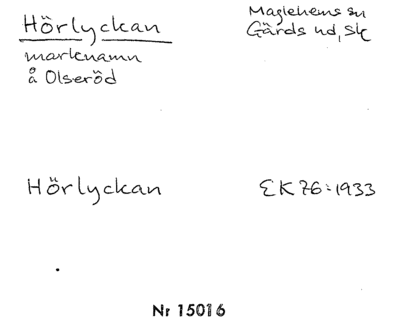 Hörlyckan
Maglehems sn
Gärds hd, Sk
marknamn
å Olseröd
Hörlyckan
EK 76:1933
Nr 15016